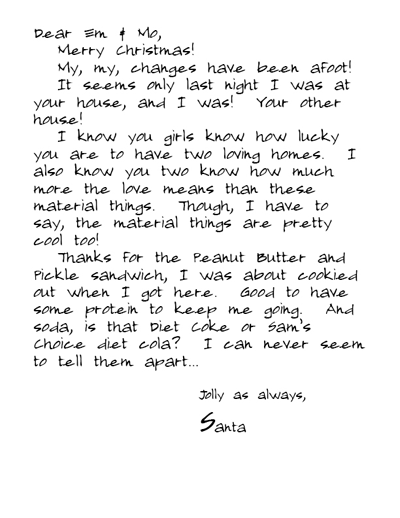 Dear Em & Mo,
Merry Christmas!
My, my, changes have been afoot!
It seems only last night I was at
your house, and I was! Your other
house!
I know you girls know how lucky
you are to have two loving homes. I
also know you two know how much
more the love means than these
material things. Though, I have to
say, the material things are pretty
cool too!
Thanks for the Peanut Butter and
Pickle sandwich, I was about cookied
out when I got here. Good to have
some protein to keep me going. And
soda, is that Diet Coke or Sam's
Choice diet cola? I can never seem
to tell them apart...
Jolly as always,
Santa